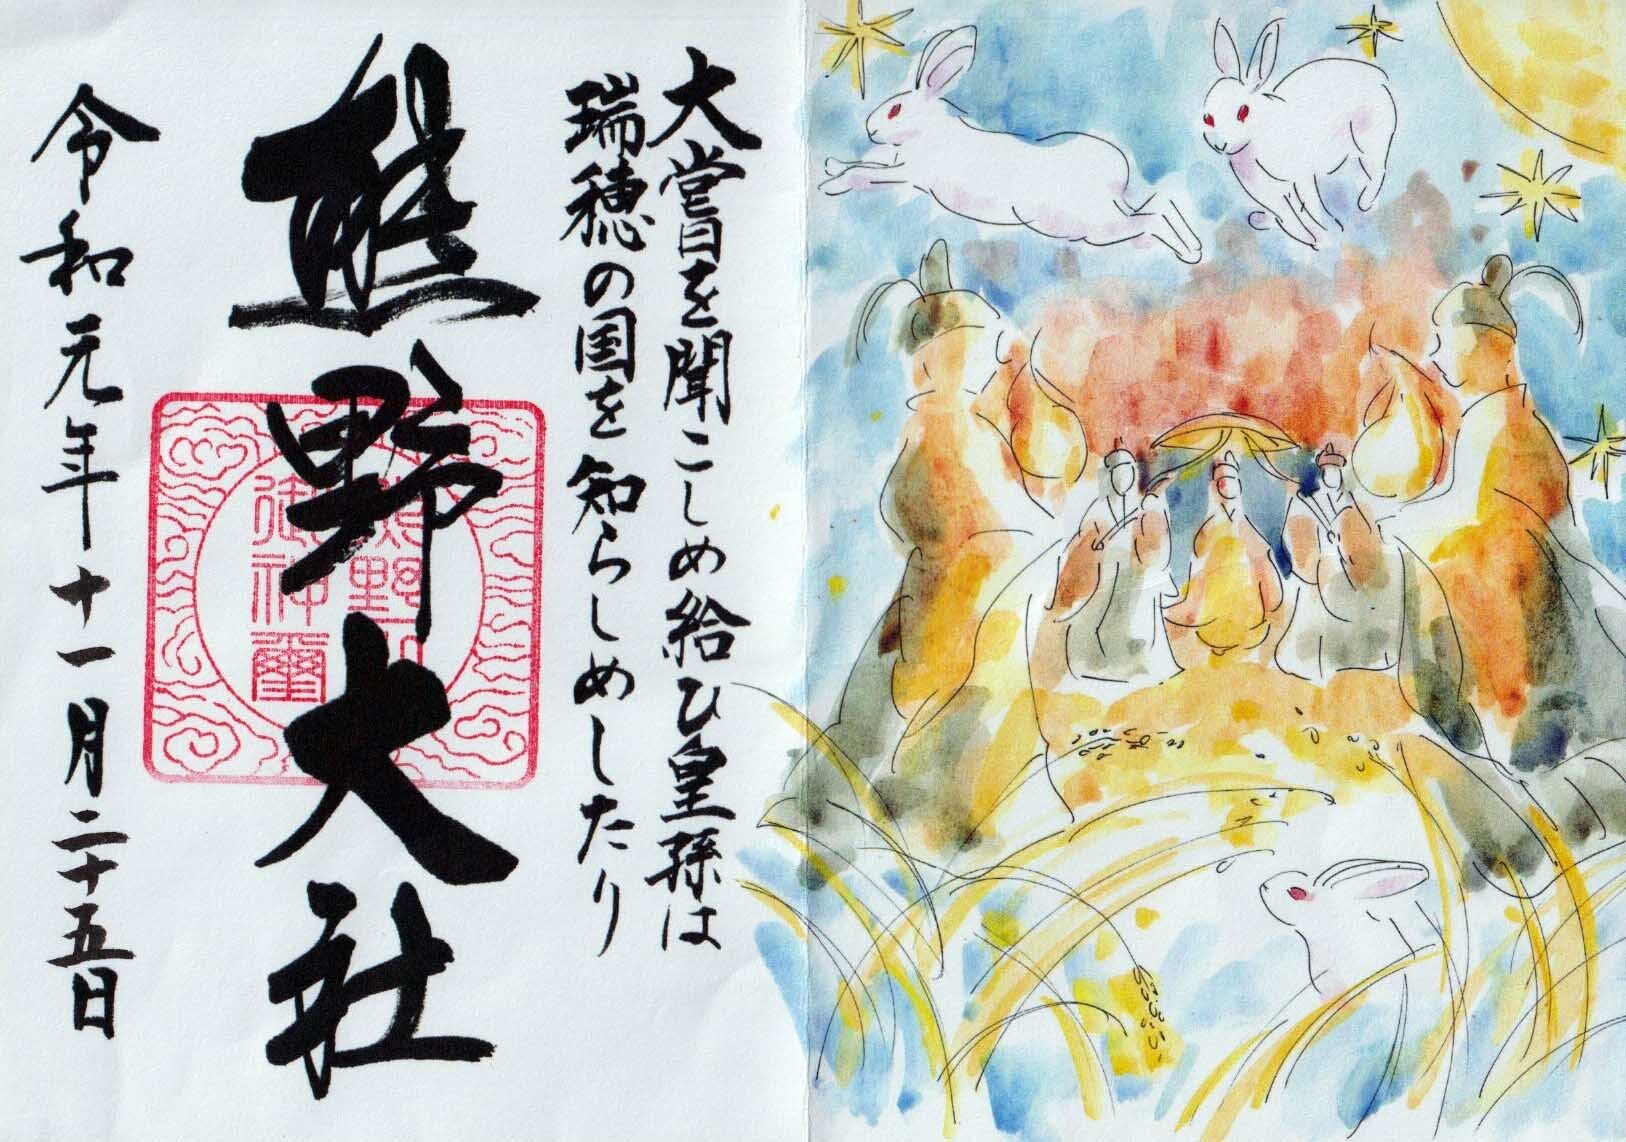 大嘗を聞こしめ給ひ皇孫は
瑞穂の国を知らしめしたり
熊野大社
令和元年十一月二十五日
御神璽